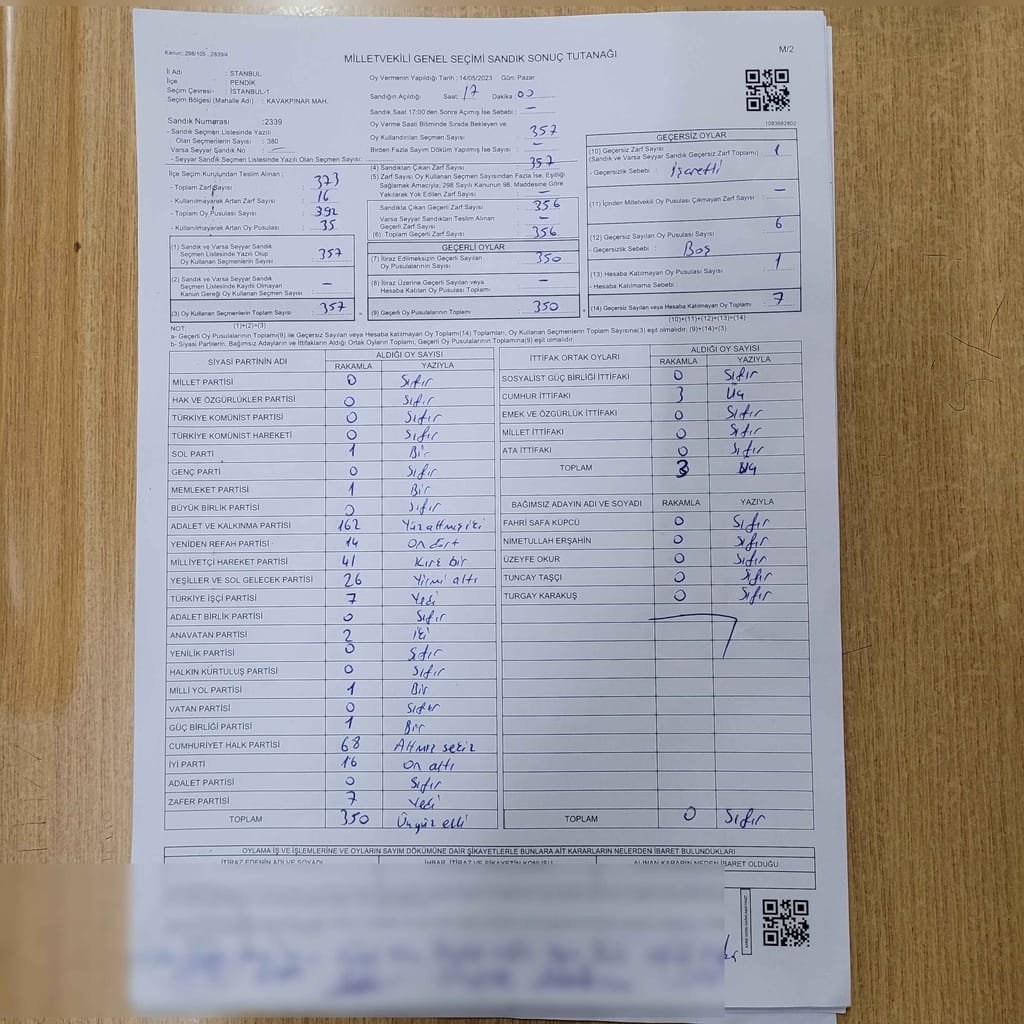 Kanun: 298/105 , 2839/4
M/2
MİLLETVEKİLİ GENEL SEÇİMİ SANDIK SONUÇ TUTANAĞI
İl Adı : İSTANBUL
İlçe : PENDİK
Seçim Çevresi : İSTANBUL-1
Seçim Bölgesi (Mahalle Adı) : KAVAKPINAR MAH.
Sandık Numarası :2339
- Sandık Seçmen Listesinde Yazılı
Olan Seçmenlerin Sayısı : 380
Varsa Seyyar Sandık No : —
- Seyyar Sandık Seçmen Listesinde Yazılı Olan Seçmen Sayısı:
Oy Vermenin Yapıldığı Tarih : 14/05/2023 Gün: Pazar
Sandığın Açıldığı Saat: 17 Dakika: 00
Sandık Saat 17:00'den Sonra Açılmış İse Sebebi : —
Oy Verme Saati Bitiminde Sırada Bekleyen ve
Oy Kullandırılan Seçmen Sayısı : 357
Birden Fazla Sayım Döküm Yapılmış İse Sayısı : —
1083682802
İlçe Seçim Kurulundan Teslim Alınan :
- Toplam Zarf Sayısı : 373
- Kullanılmayarak Artan Zarf Sayısı : 16
- Toplam Oy Pusulası Sayısı : 392
- Kullanılmayarak Artan Oy Pusulası : 35
(1) Sandık ve Varsa Seyyar Sandık
Seçmen Listesinde Yazılı Olup
Oy Kullanan Seçmenlerin Sayısı : 357
(2) Sandık ve Varsa Seyyar Sandık
Seçmen Listesinde Kayıtlı Olmayan
Kanun Gereği Oy Kullanan Seçmen Sayısı : —
(3) Oy Kullanan Seçmenlerin Toplam Sayısı : 357
(1)+(2)=(3)
(4) Sandıktan Çıkan Zarf Sayısı : 357
(5) Zarf Sayısı Oy Kullanan Seçmen Sayısından Fazla İse, Eşitliği
Sağlamak Amacıyla; 298 Sayılı Kanunun 98. Maddesine Göre
Yakılarak Yok Edilen Zarf Sayısı : —
Sandıkta Çıkan Geçerli Zarf Sayısı : 356
Varsa Seyyar Sandıktan Teslim Alınan
Geçerli Zarf Sayısı : —
(6) Toplam Geçerli Zarf Sayısı : 356
GEÇERLİ OYLAR
(7) İtiraz Edilmeksizin Geçerli Sayılan
Oy Pusulalarının Sayısı : 350
(8) İtiraz Üzerine Geçerli Sayılan veya
Hesaba Katılan Oy Pusulası Toplamı : —
(9) Geçerli Oy Pusulalarının Toplamı : 350
GEÇERSİZ OYLAR
(10) Geçersiz Zarf Sayısı
(Sandık ve Varsa Seyyar Sandık Geçersiz Zarf Toplamı) : 1
- Geçersizlik Sebebi : işaretli
(11) İçinden Milletvekili Oy Pusulası Çıkmayan Zarf Sayısı : —
(12) Geçersiz Sayılan Oy Pusulası Sayısı : 6
- Geçersizlik Sebebi : Boş
(13) Hesaba Katılmayan Oy Pusulası Sayısı : 1
- Hesaba Katılmama Sebebi :
(14) Geçersiz Sayılan veya Hesaba Katılmayan Oy Toplamı : 7
(10)+(11)+(12)+(13)=(14)
NOT:
a- Geçerli Oy Pusulalarının Toplamı(9) ile Geçersiz Sayılan veya Hesaba katılmayan Oy Toplamı(14) Toplamları, Oy Kullanan Seçmenlerin Toplam Sayısına(3) eşit olmalıdır. (9)+(14)=(3)
b- Siyasi Partilerin, Bağımsız Adayların ve İttifakların Aldığı Ortak Oyların Toplamı, Geçerli Oy Pusulalarının Toplamına(9) eşit olmalıdır.
SİYASİ PARTİNİN ADI ALDIĞI OY SAYISI
RAKAMLA YAZIYLA
MİLLET PARTİSİ 0 Sıfır
HAK VE ÖZGÜRLÜKLER PARTİSİ 0 Sıfır
TÜRKİYE KOMÜNİST PARTİSİ 0 Sıfır
TÜRKİYE KOMÜNİST HAREKETİ 0 Sıfır
SOL PARTİ 1 Bir
GENÇ PARTİ 0 Sıfır
MEMLEKET PARTİSİ 1 Bir
BÜYÜK BİRLİK PARTİSİ 0 Sıfır
ADALET VE KALKINMA PARTİSİ 162 Yüzaltmışiki
YENİDEN REFAH PARTİSİ 14 On dört
MİLLİYETÇİ HAREKET PARTİSİ 41 Kırk bir
YEŞİLLER VE SOL GELECEK PARTİSİ 26 Yirmi altı
TÜRKİYE İŞÇİ PARTİSİ 7 Yedi
ADALET BİRLİK PARTİSİ 0 Sıfır
ANAVATAN PARTİSİ 2 iki
YENİLİK PARTİSİ 0 Sıfır
HALKIN KURTULUŞ PARTİSİ 0 Sıfır
MİLLİ YOL PARTİSİ 1 Bir
VATAN PARTİSİ 0 Sıfır
GÜÇ BİRLİĞİ PARTİSİ 1 Bir
CUMHURİYET HALK PARTİSİ 68 Altmış sekiz
İYİ PARTİ 16 On altı
ADALET PARTİSİ 0 Sıfır
ZAFER PARTİSİ 7 Yedi
TOPLAM 350 Üçyüz elli
İTTİFAK ORTAK OYLARI ALDIĞI OY SAYISI
RAKAMLA YAZIYLA
SOSYALİST GÜÇ BİRLİĞİ İTTİFAKI 0 Sıfır
CUMHUR İTTİFAKI 3 Üç
EMEK VE ÖZGÜRLÜK İTTİFAKI 0 Sıfır
MİLLET İTTİFAKI 0 Sıfır
ATA İTTİFAKI 0 Sıfır
TOPLAM 3 Üç
BAĞIMSIZ ADAYIN ADI VE SOYADI RAKAMLA YAZIYLA
FAHRİ SAFA KÜPCÜ 0 Sıfır
NİMETULLAH ERŞAHİN 0 Sıfır
ÜZEYFE OKUR 0 Sıfır
TUNCAY TAŞÇI 0 Sıfır
TURGAY KARAKUŞ 0 Sıfır
TOPLAM 0 Sıfır
OYLAMA İŞ VE İŞLEMLERİNE VE OYLARIN SAYIM DÖKÜMÜNE DAİR ŞİKAYETLERLE BUNLARA AİT KARARLARIN NELERDEN İBARET BULUNDUKLARI
İTİRAZ EDENİN ADI VE SOYADI İHBAR, İTİRAZ VE ŞİKAYETİN KONUSU ALINAN KARARIN NEDEN İBARET OLDUĞU